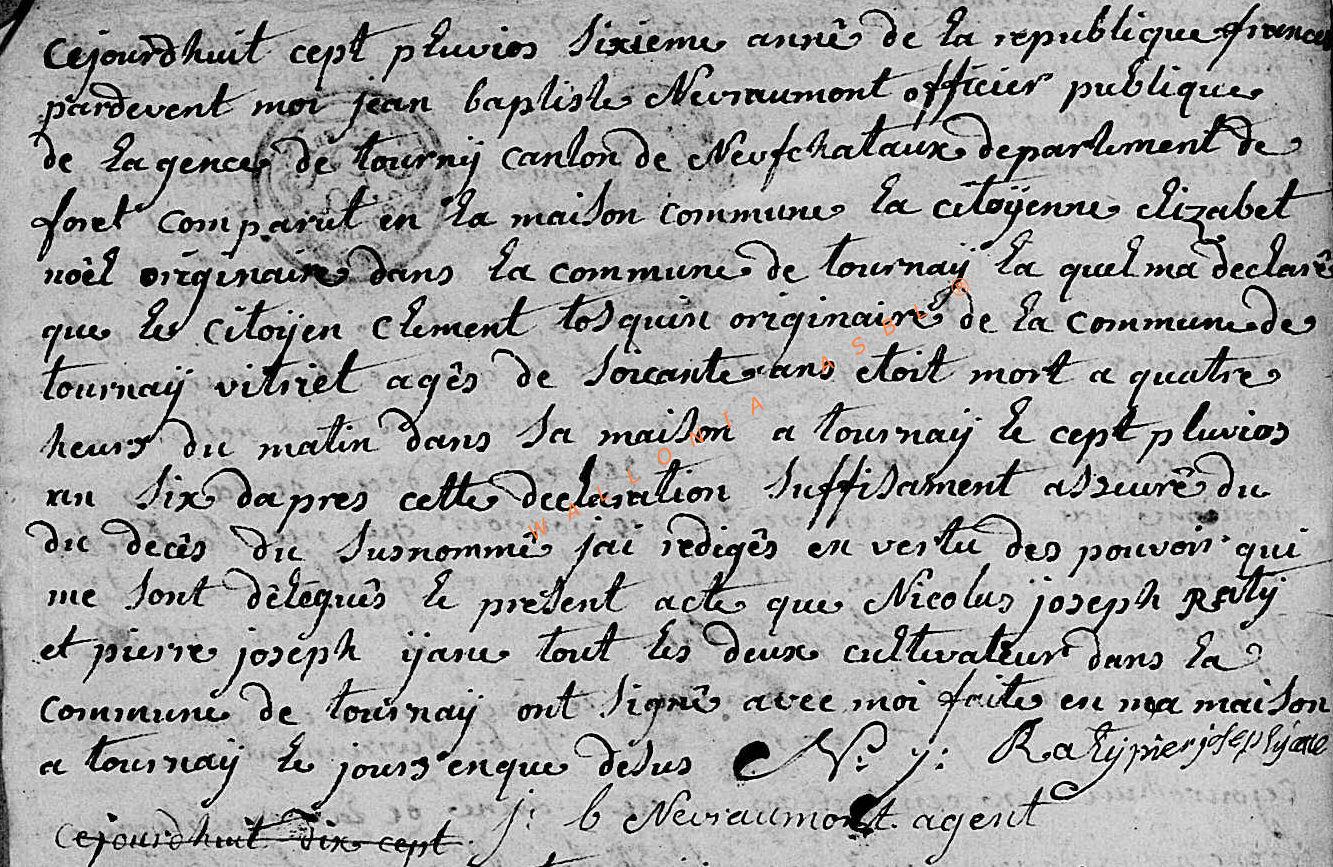 Cejourdhuit cept pluvios sixieme annê de la republique france
pardevent moi jean baptiste Nevraumont officier publique
de lagence de tourny canton de Neufchataux departement de
foret comparut en la maison commune la citoÿenne elizabet
noêl originaire dans la commune de tournaÿ la quel ma declarê
que le citoÿen Clement tosquin originaire de la commune de
tournaÿ vitriet agês de soixante ans etoit mort a quatre
heurs du matin dans sa maison a tournaÿ le cept pluvios
an six dapres cette declaration suffisament asseurê du
du decês du susnommê jai redigês en vertu des pouvoir qui
me sont dêlèguês le present acte que Nicolas joseph Ratÿ
et pierre joseph ijane tout les deux cultivateur dans la
commune de tournaÿ ont signê avec moi faite en ma maison
a tournaÿ le jours enque desus N: j: Ratÿ pier joseph ijane
j: b Nevraumont agent
Cejourdhuit dix cept
WALLONIA ASBL ®